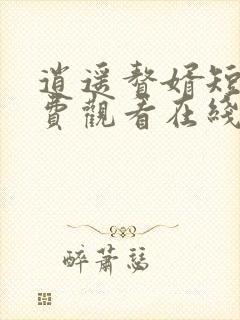 逍遥贅婿短
費觀看在綫
醉蕭瑟